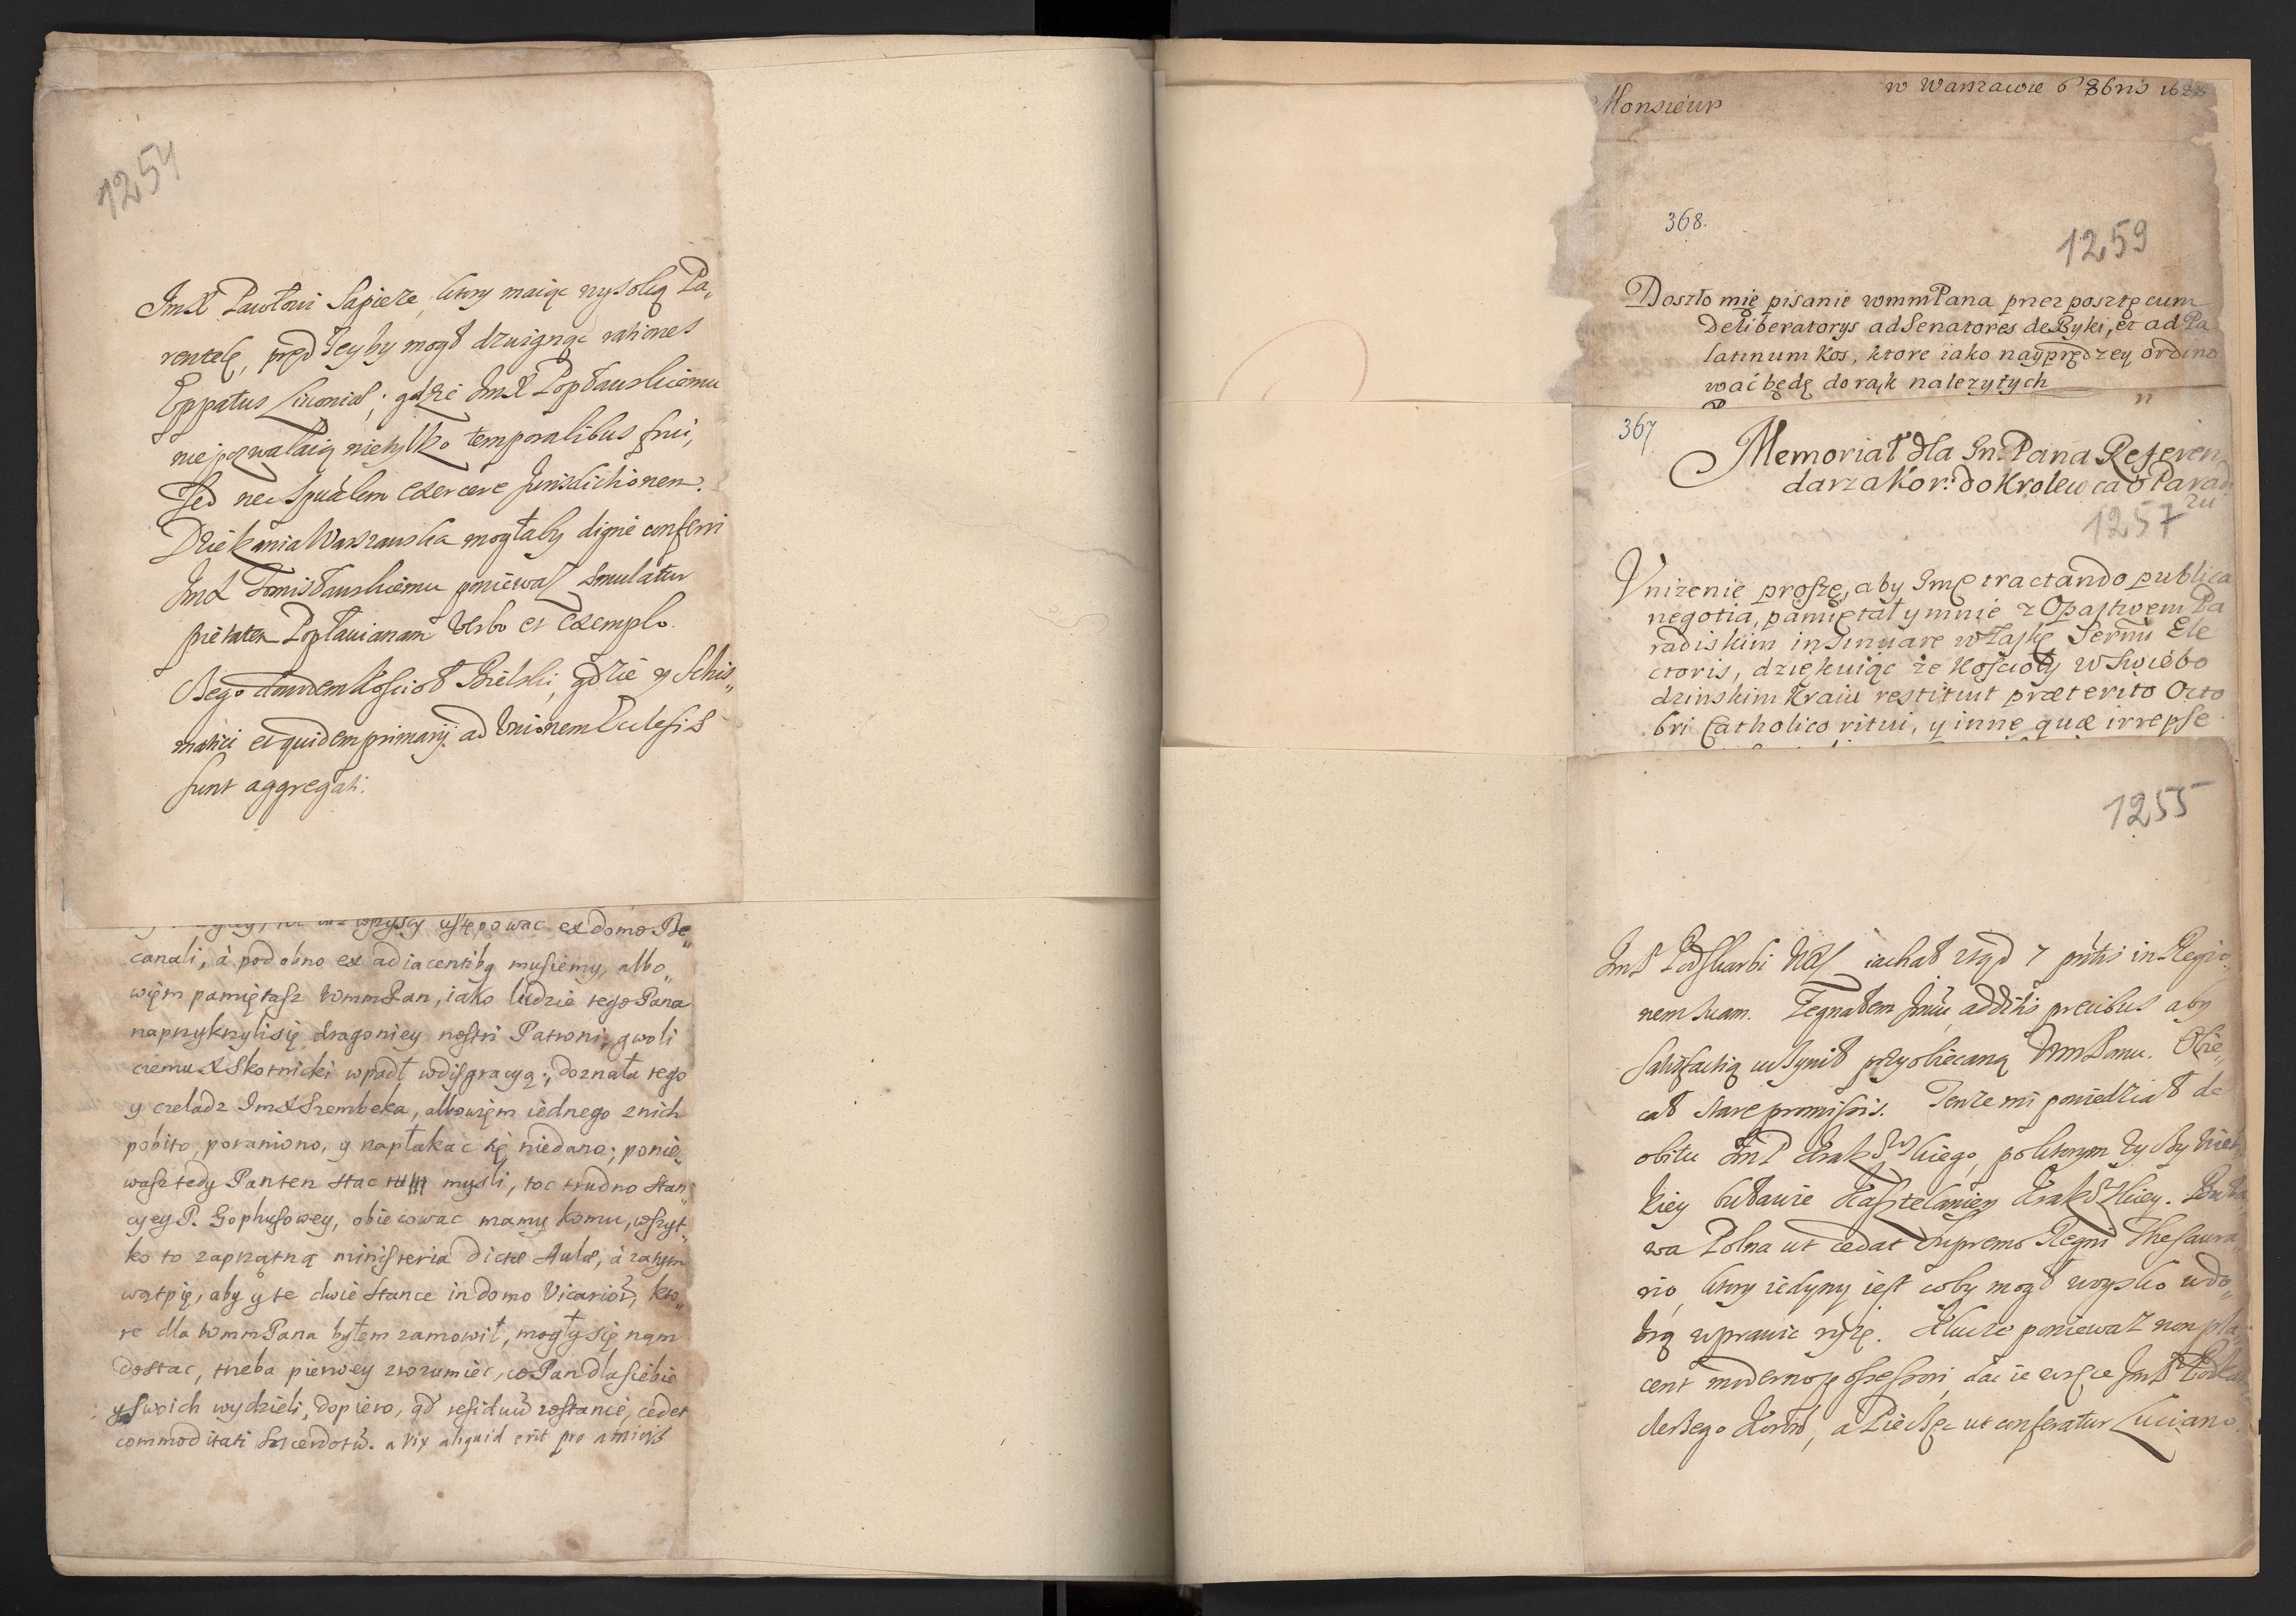 1254
ImX Pawłowi Sapieże, ktory maiąc wysoką Pa„
rentelę, prędzey by mogł dzwignąc rationes
Eppatus Livoniæ; gdzie ImX Popławskiemu
nie pozwalaią nietylko temporalibus frui,
sed nec spualem exercere Jurisdictionem.
Dziekania Warszawska mogłaby digne conferri
ImX poniewasz emulatur
pietatem Poplavianam verbo et exemplo.
Koscioł Bielski, gdzie y Schis„
matici et quidem primarij ad Unionem Ecclesiæ
sunt aggregati.
ustępowac ex domo De„
canali, à podobno ex adiacentibq musiemy, albo„
więm pamiętasz WmmPan, iako ludzie tego Pana
naprzykrzyli się dragoniey nostri Patroni, gwoli
czemu X Skotnicki wpadł w disgracyą; doznała tego
y czeladz ImX Szembeka, albowięm iednego z nich
pobito, poraniono, y napłakac się niedano; ponie„
wasz tedy Pan ten stac mysli, toc trudno stan„
cyey P. Gophusowey, obiecowac mamy komu, wszyt„
ko to zaprzątną ministeria dictæ Aulæ, à zatym
wątpię, aby y te dwie stance in domo Vicarior, kto„
re dla WmmPana byłem zamowił, mogły się nam
dostac, trzeba pierwey zrozumiec, co Pan dla siebie
y swoich wydzieli, dopiero, qd residuu zostanie, cedet
commoditati Sacerdotu. a vix aliquid erit pro amicis
w Warszawie 6 8bris 1688
Monsieur
368.
1259
Doszło mię pisanie wmmPana przez posztę cum
Deliberatorys ad Senatores de Byki, et ad Pa
latinum Kos, ktore iako nayprędzey ordino
wać będę do rąk nalezytych
367
Memoriał dla Im Pana Referen
darza Kor: do Krolewca o Parady
zu
1257
Vnizenie proszę, aby Imę tractando publica
negotia, pamiętał y mnie z Opactwem Pa
radiskim insinuare w łaskę Sermi Ele
ctoris, dziękuiąc że Koscioły w Swiebo
dzinskim Kraiu restituit præterito Octo
bri Catholico ritui, y inne quæ irrepse
1255
ImP Podskarbi WXL iachał ztąd 7 pntis in Regio„
nem suam. Zegnałem additis precibus aby
satisfactią uczynił przyobiecaną WmmPanu. Obie„
cał stare promissis. Tenze mi powiedział de
obitu ImP Krakowskiego, po ktorym zyczy Wiel
kiey buławie Kasztelaniey Krakowskiey. Buła
wa Polna ut cedat Supremo Regni Thesaura„
rio, ktory iedyny iest coby mogł woysko w do„
brą wprawic ryzę. Klucze poniewaz non pla„
cent moderno possessori, dac ie w ręce ImP
, a Pieczęc ut conferatur Luciano